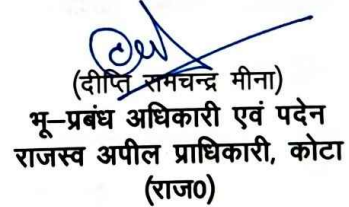 (दीप्ति रामचन्द्र मीना)
भू–प्रबंध अधिकारी एवं पदेन
राजस्व अपील प्राधिकारी, कोटा
(राज0)